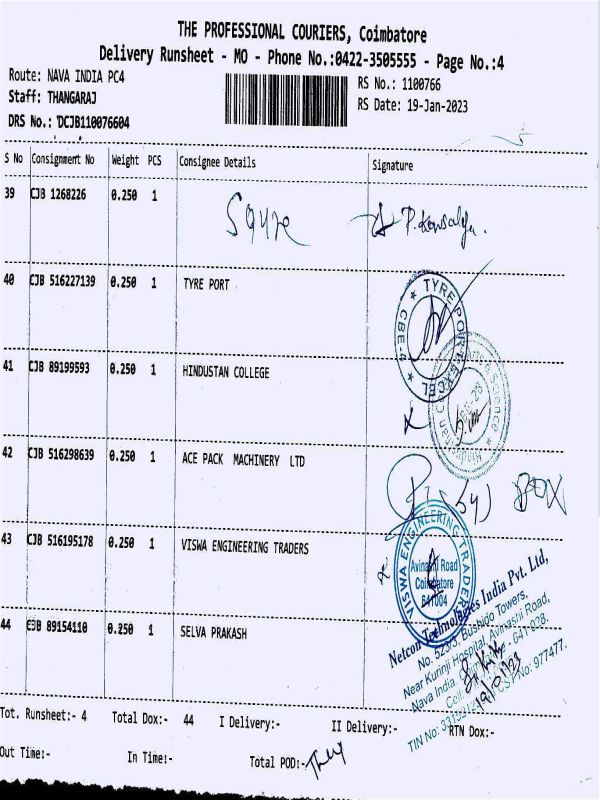 THE PROFESSIONAL COURIERS, Coimbatore
Delivery Runsheet - MO - Phone No.:0422-3505555 - Page No.:4
Route: NAVA INDIA PC4
RS No.: 1100766
Staff: THANGARAJ
RS Date: 19-Jan-2023
DRS No.: DCJB110076604
S No Consignment No Weight PCS Consignee Details Signature
39 CJB 1268226 0.250 1
40 CJB 516227139 0.250 1 TYRE PORT
TYRE PORT EXCEL
CBE-4
41 CJB 89199593 0.250 1 HINDUSTAN COLLEGE
42 CJB 516298639 0.250 1 ACE PACK MACHINERY LTD
BOX
43 CJB 516195178 0.250 1 VISWA ENGINEERING TRADERS
VISWA ENGINEERING TRADERS
Avinashi Road
Coimbatore
641004
44 CJB 89154110 0.250 1 SELVA PRAKASH
Netcon Technologies India Pvt. Ltd,
No. 529/3, Bushido Towers,
Near Kurinji Hospital, Avinashi Road,
Nava India, - 641 028.
No: 977477.
TIN No:
Tot. Runsheet:- 4 Total Dox:- 44 I Delivery:- II Delivery:- RTN Dox:-
Out Time:- In Time:- Total POD:-